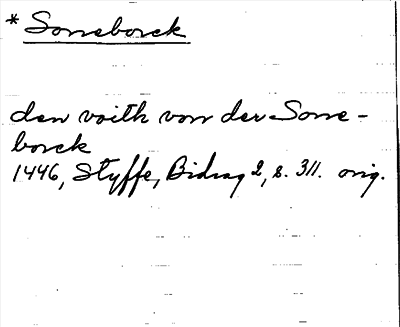 * Sonneborck
den voith von der Sonne-
borck
1446, Styffe, Bidrag 2, s. 311. orig.